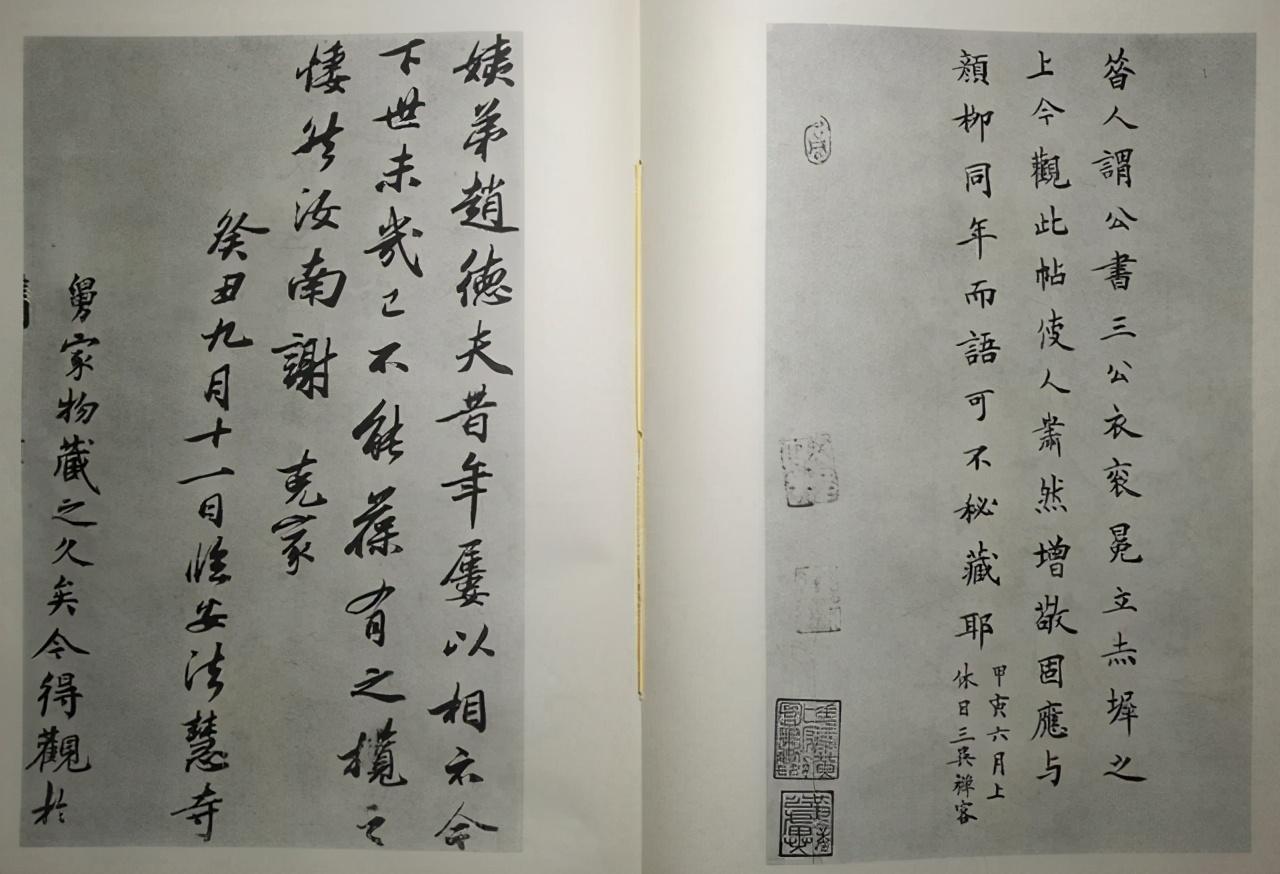 昝人謂公書三公衣衮冕立赤墀之
上今觀此帖使人肅然增敬固應与
顏柳同年而語可不秘藏耶
甲寅六月上
休日三吳禅客
姨弟趙德夫昔年屢以相示今
下世未幾已不能葆有之攬之
悽然汝南謝克家
癸丑九月十一日臨安法慧寺
舅家物藏之久矣今得觀於